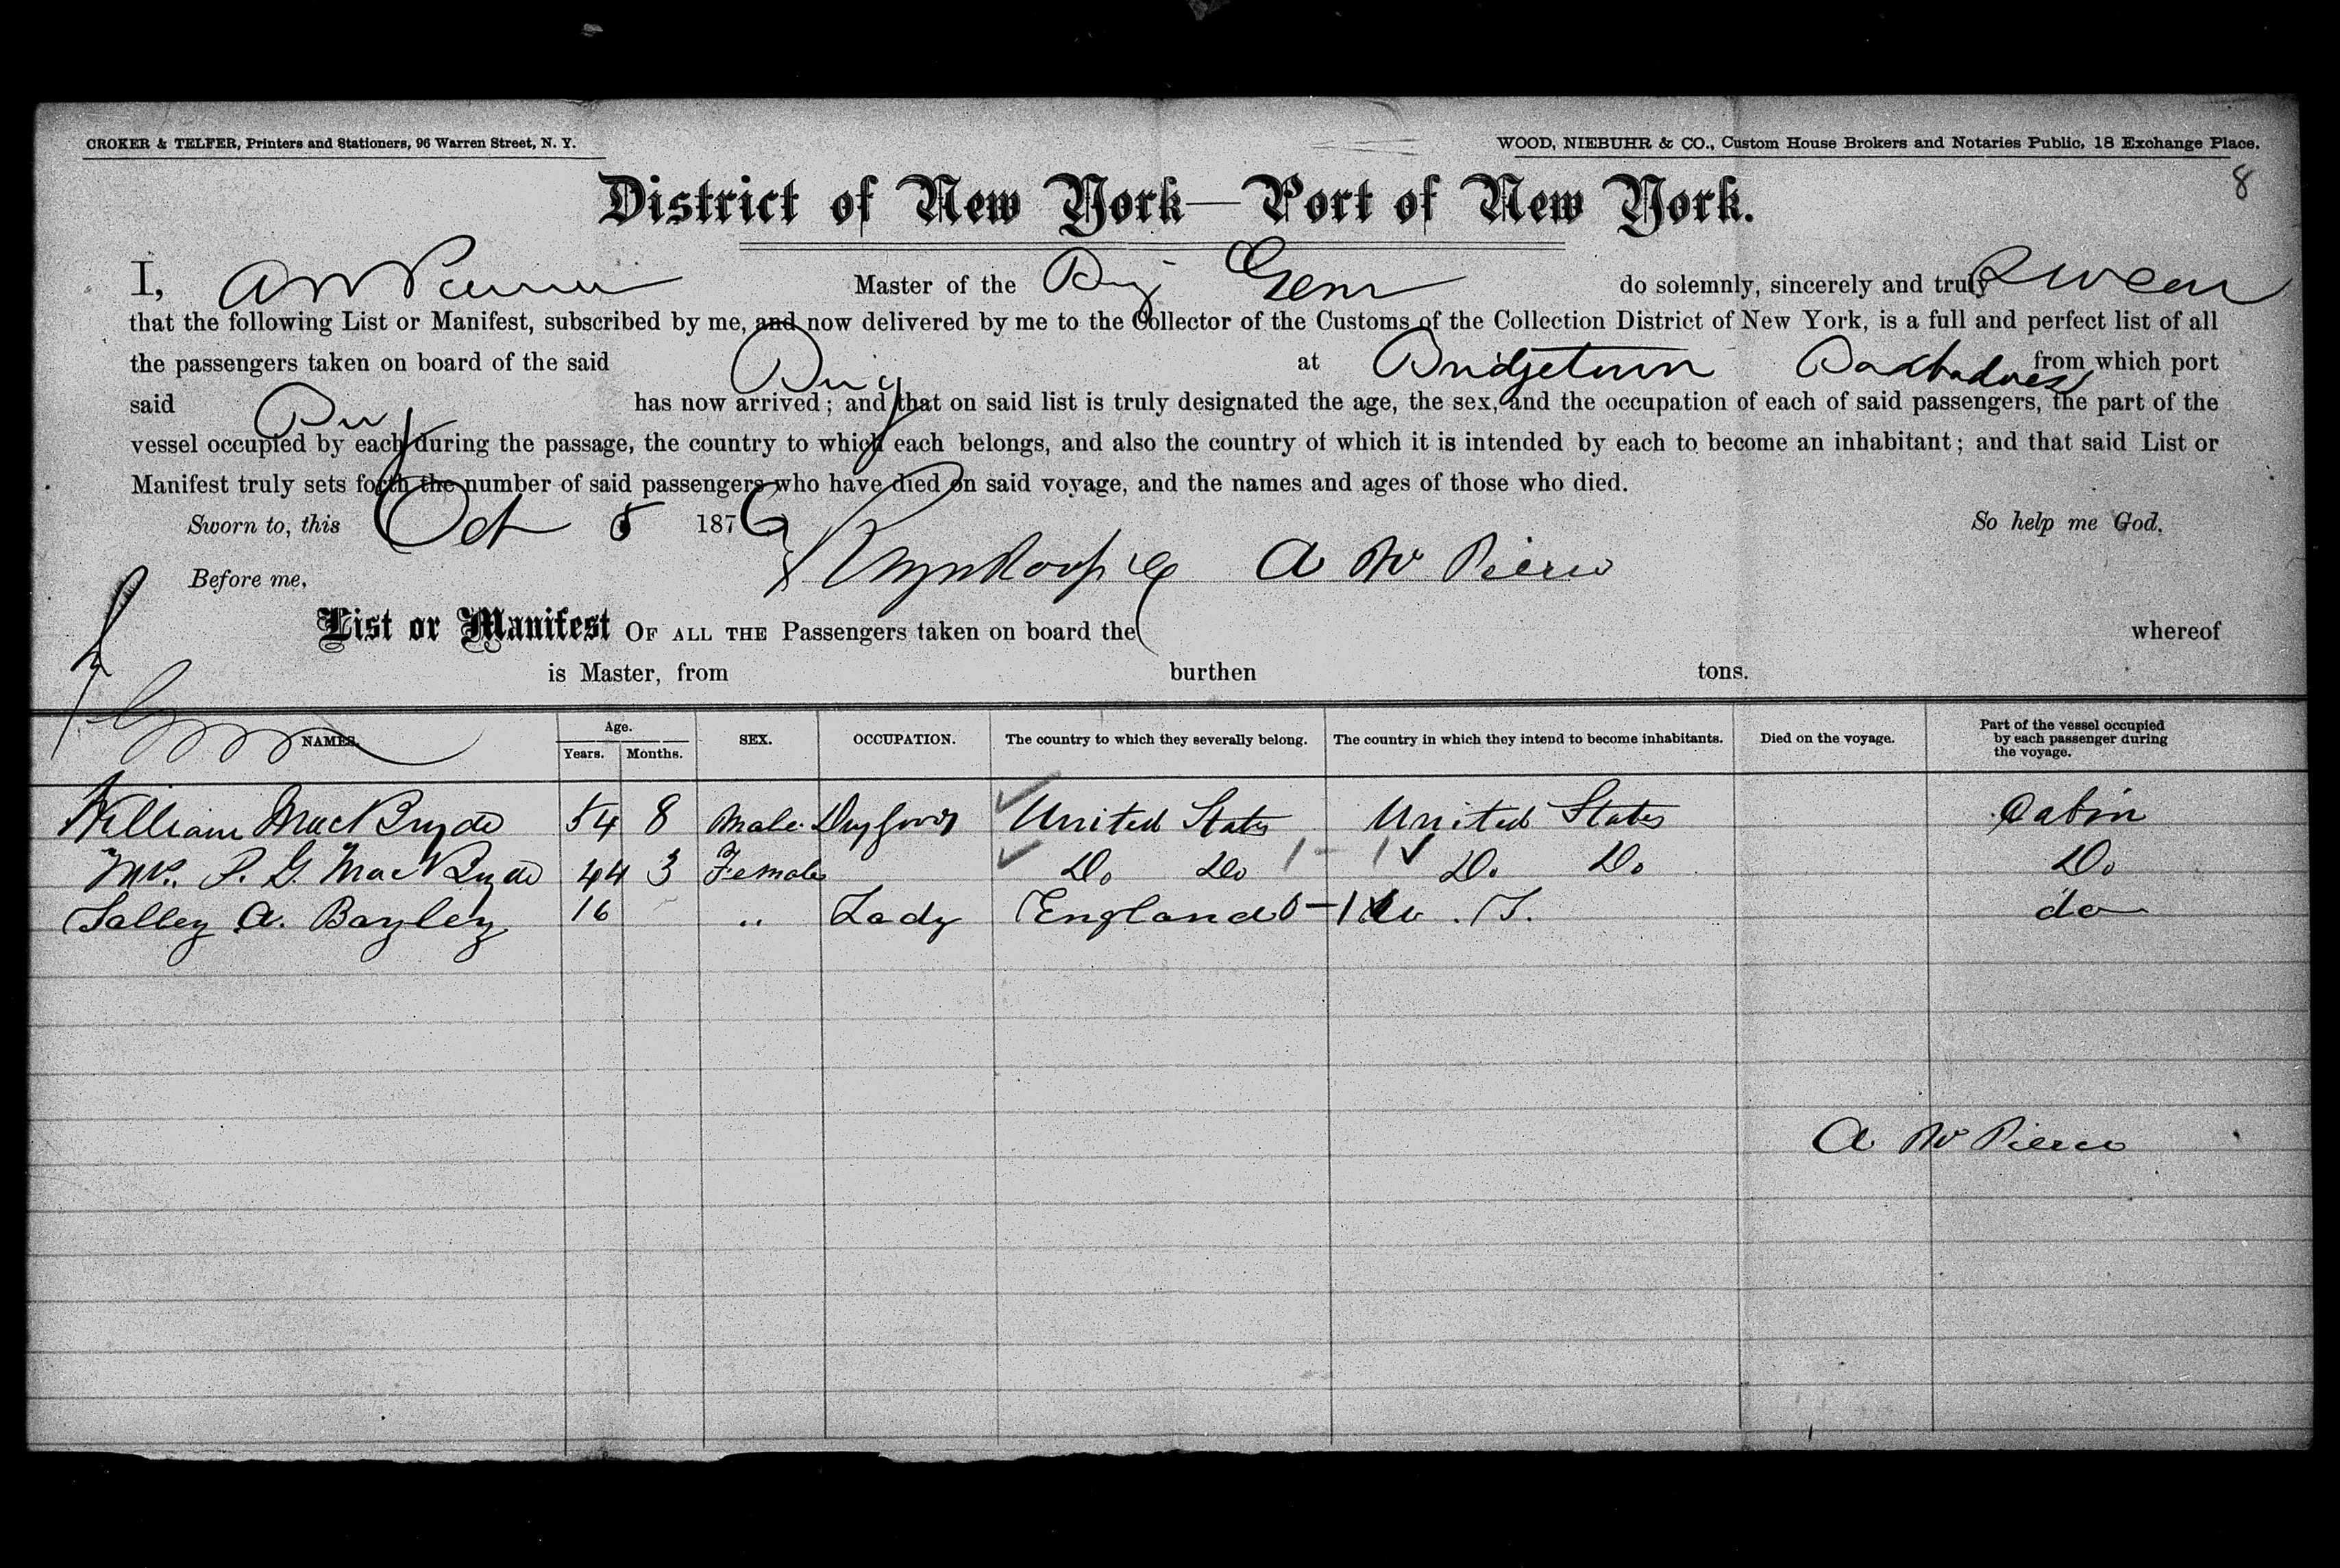 CROKER & TELFER, Printers and Stationers, 96 Warren Street, N. Y. WOOD, NIEBUHR & CO., Custom House Brokers and Notaries Public, 18 Exchange Place.
8
District of New York—Port of New York.
I, A W Pierce Master of the Brig Gem do solemnly, sincerely and truly Swear
that the following List or Manifest, subscribed by me, and now delivered by me to the Collector of the Customs of the Collection District of New York, is a full and perfect list of all
the passengers taken on board of the said Brig at Bridgetown Barbadoes from which port
said Brig has now arrived; and that on said list is truly designated the age, the sex, and the occupation of each of said passengers, the part of the
vessel occupied by each during the passage, the country to which each belongs, and also the country of which it is intended by each to become an inhabitant; and that said List or
Manifest truly sets forth the number of said passengers who have died on said voyage, and the names and ages of those who died.
Sworn to, this Oct 5 1876 So help me God.
Before me, A W Pierce
List or Manifest OF ALL THE Passengers taken on board the whereof
is Master, from burthen tons.
NAMES. Age. Years. Months. SEX. OCCUPATION. The country to which they severally belong. The country in which they intend to become inhabitants. Died on the voyage. Part of the vessel occupied by each passenger during the voyage.
William MacBryde 54 8 Male United States United States Cabin
Mrs. P. G. MacBryde 44 3 Female Do Do Do Do Do
Salley A. Bayley 16 " Lady England do
A W Pierce